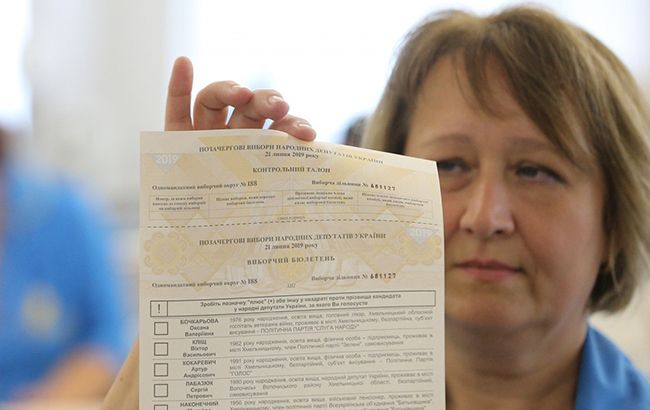 2019
ПОЗАЧЕРГОВІ ВИБОРИ НАРОДНИХ ДЕПУТАТІВ УКРАЇНИ
21 липня 2019 року
КОНТРОЛЬНИЙ ТАЛОН
Одномандатний виборчий округ № 188 Виборча дільниця № 681127
ПОЗАЧЕРГОВІ ВИБОРИ НАРОДНИХ ДЕПУТАТІВ УКРАЇНИ
2019
21 липня 2019 року
ВИБОРЧИЙ БЮЛЕТЕНЬ
Одномандатний виборчий округ № 188 Виборча дільниця № 681127
! Зробіть позначку "плюс" (+) або іншу у квадраті проти прізвища кандидата
у народні депутати України, за якого Ви голосуєте
БОЧКАРЬОВА Оксана Валеріївна
1976 року народження, освіта вища, головний лікар, Хмельницький обласний
госпіталь ветеранів війни, проживає в місті Хмельницькому, безпартійна, суб'єкт
висування - ПОЛІТИЧНА ПАРТІЯ "СЛУГА НАРОДУ"
КЛІЩ Віктор Васильович
1962 року народження, освіта вища, фізична особа - підприємець, проживає
в місті Хмельницькому, член Політичної партії "Зелені", самовисування
КОКАРЕВИЧ Артур Андрійович
1991 року народження, освіта вища, фізична особа - підприємець, проживає в
місті Хмельницькому, безпартійний, суб'єкт висування - Політична Партія
"ГОЛОС"
ЛАБАЗЮК Сергій Петрович
1980 року народження, освіта вища, народний депутат України, проживає в
Волочиськ Волочиського району Хмельницької області, безпартійний,
самовисування
НАКОНЕЧНИЙ